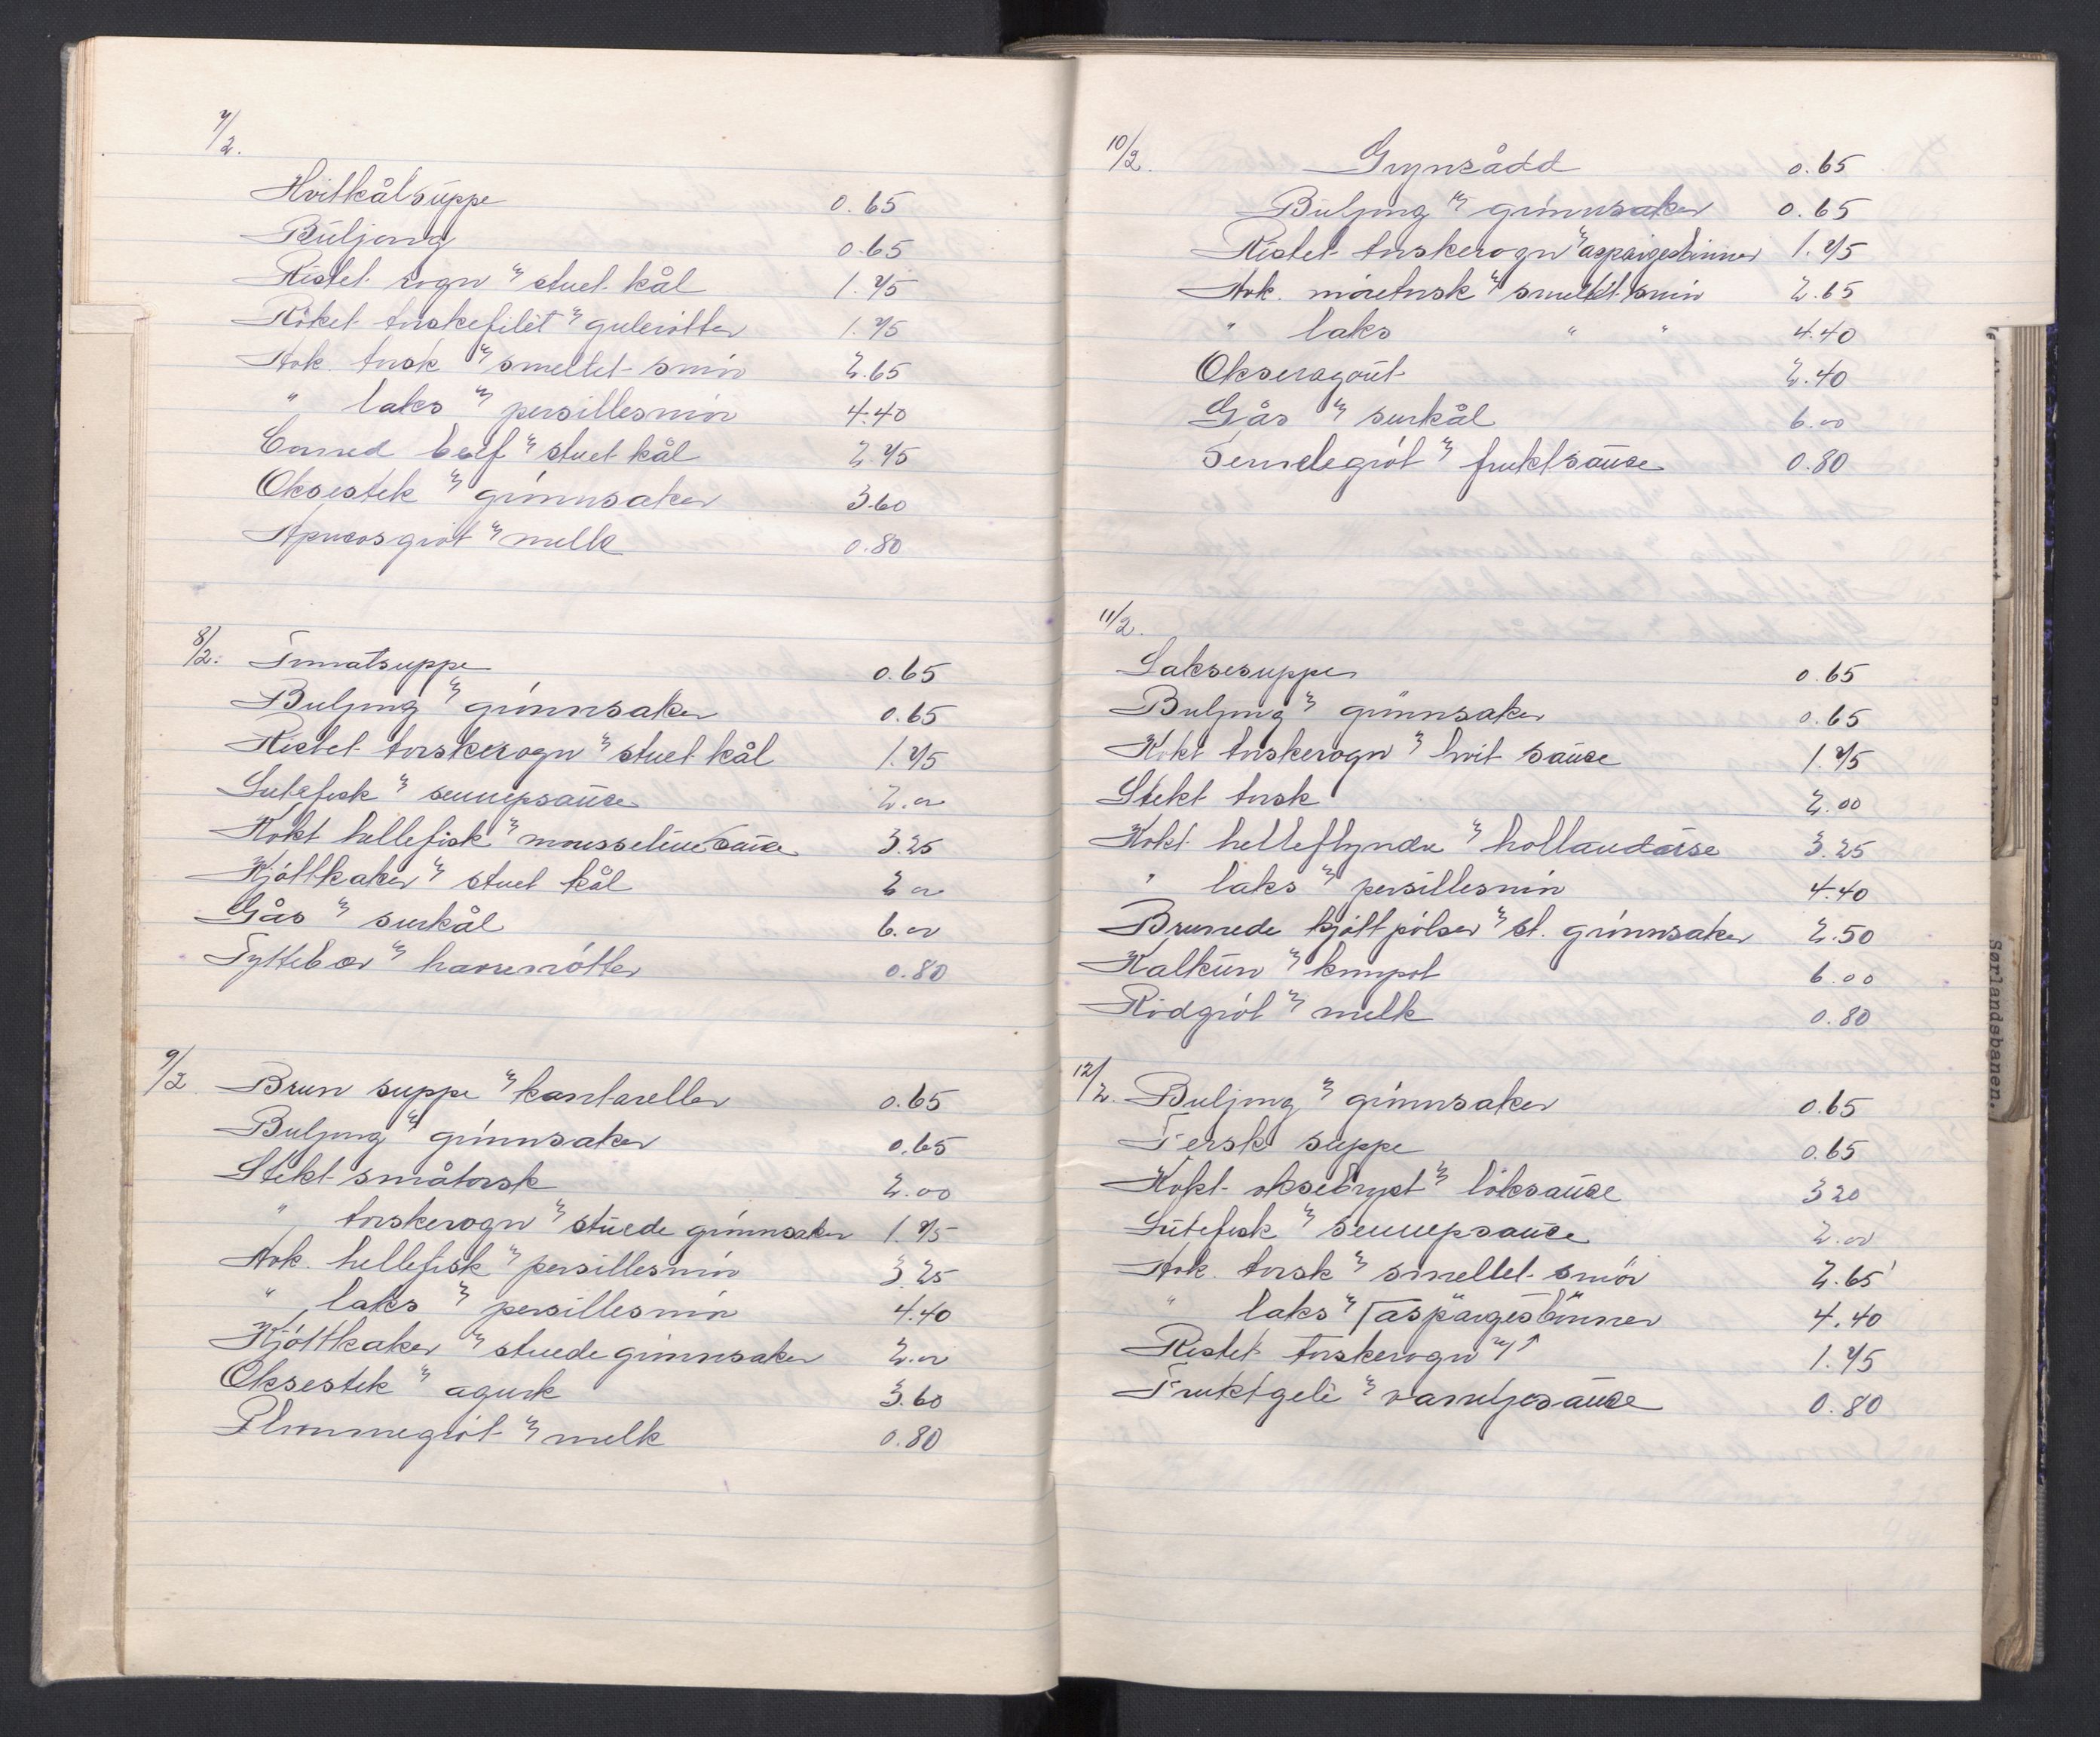 7/2.
Hvitkålsuppe 0.65
Buljong 0.65
Ristet rogn m/ stuet kål 1.75
Röket torskefilêt m/ gulerötter 1.75
Kok. torsk m/ smeltet smör 2.65
" laks m/ persillesmör 4.40
Corned beef m/ stuet kål 2.75
Oksestek m/ grönnsaker 3.60
Apricosgröt m/ melk 0.80
8/2. Tomatsuppe 0.65
Buljong m/ grönnsaker 0.65
Ristet torskerogn m/ stuet kål 1.75
Lutefisk m/ sennepsause 2.00
Kokt hellefisk m/ mousselinesause 3.25
Kjöttkaker m/ stuet kål 2 00
Gås m/ surkål 6.00
Tyttebær m/ 0.80
9/2 Brun suppe m/ kantareller 0.65
Buljong m/ grönnsaker 0.65
Stekt småtorsk 2.00
" torskerogn m/ stuede grönnsaker 1.75
Kok. hellefisk m/ persillesmör 3.25
" laks m/ persillesmör 4.40
Kjöttkaker m/ stuede grönnsaker 2.00
Oksestek m/ agurk 3.60
Plommegröt m/ melk 0.80
10/2. Grynsådd 0.65
Buljong m/ grönnsaker 0.65
Ristet torskerogn m/ aspargesbönner 1.75
Kok. möretorsk m/ smeltet smör 2.65
" laks " " 4.40
Okseragout 2.40
Gås m/ surkål 6.00
Semulegröt m/ fruktsause 0.80
11/2.
Laksesuppe 0.65
Buljong m/ grönnsaker 0.65
Kokt torskerogn m/ hvit sause 1.75
Stekt torsk 2.00
Kokt helleflyndre m/ hollandaise 3.25
" laks m/ persillesmör 4.40
Brunede kjöttpölser m/ st. grönnsaker 2.50
Kalkun m/ kompot 6.00
Rödgröt m/ melk 0.80
12/2. Buljong m/ grönnsaker 0.65
Fersk suppe 0.65
Kokt oksebryst m/ löksause 3 20
Lutefisk m/ sennepsause 2.00
Kok. torsk m/ smeltet smör 2.65
" laks m/ aspargesbönner 4.40
Ristet torskerogn m/ ↑ 1.75
Fruktgelé m/ vaniljesause 0.80
Sørlandsbanen.